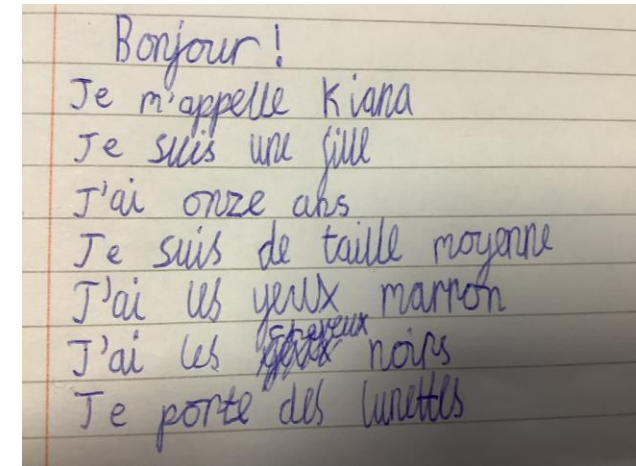 Bonjour !
Je m'appelle Kiana
Je suis une fille
J'ai onze ans
Je suis de taille moyenne
J'ai les yeux marron
J'ai les cheveux noirs
Je porte des lunettes